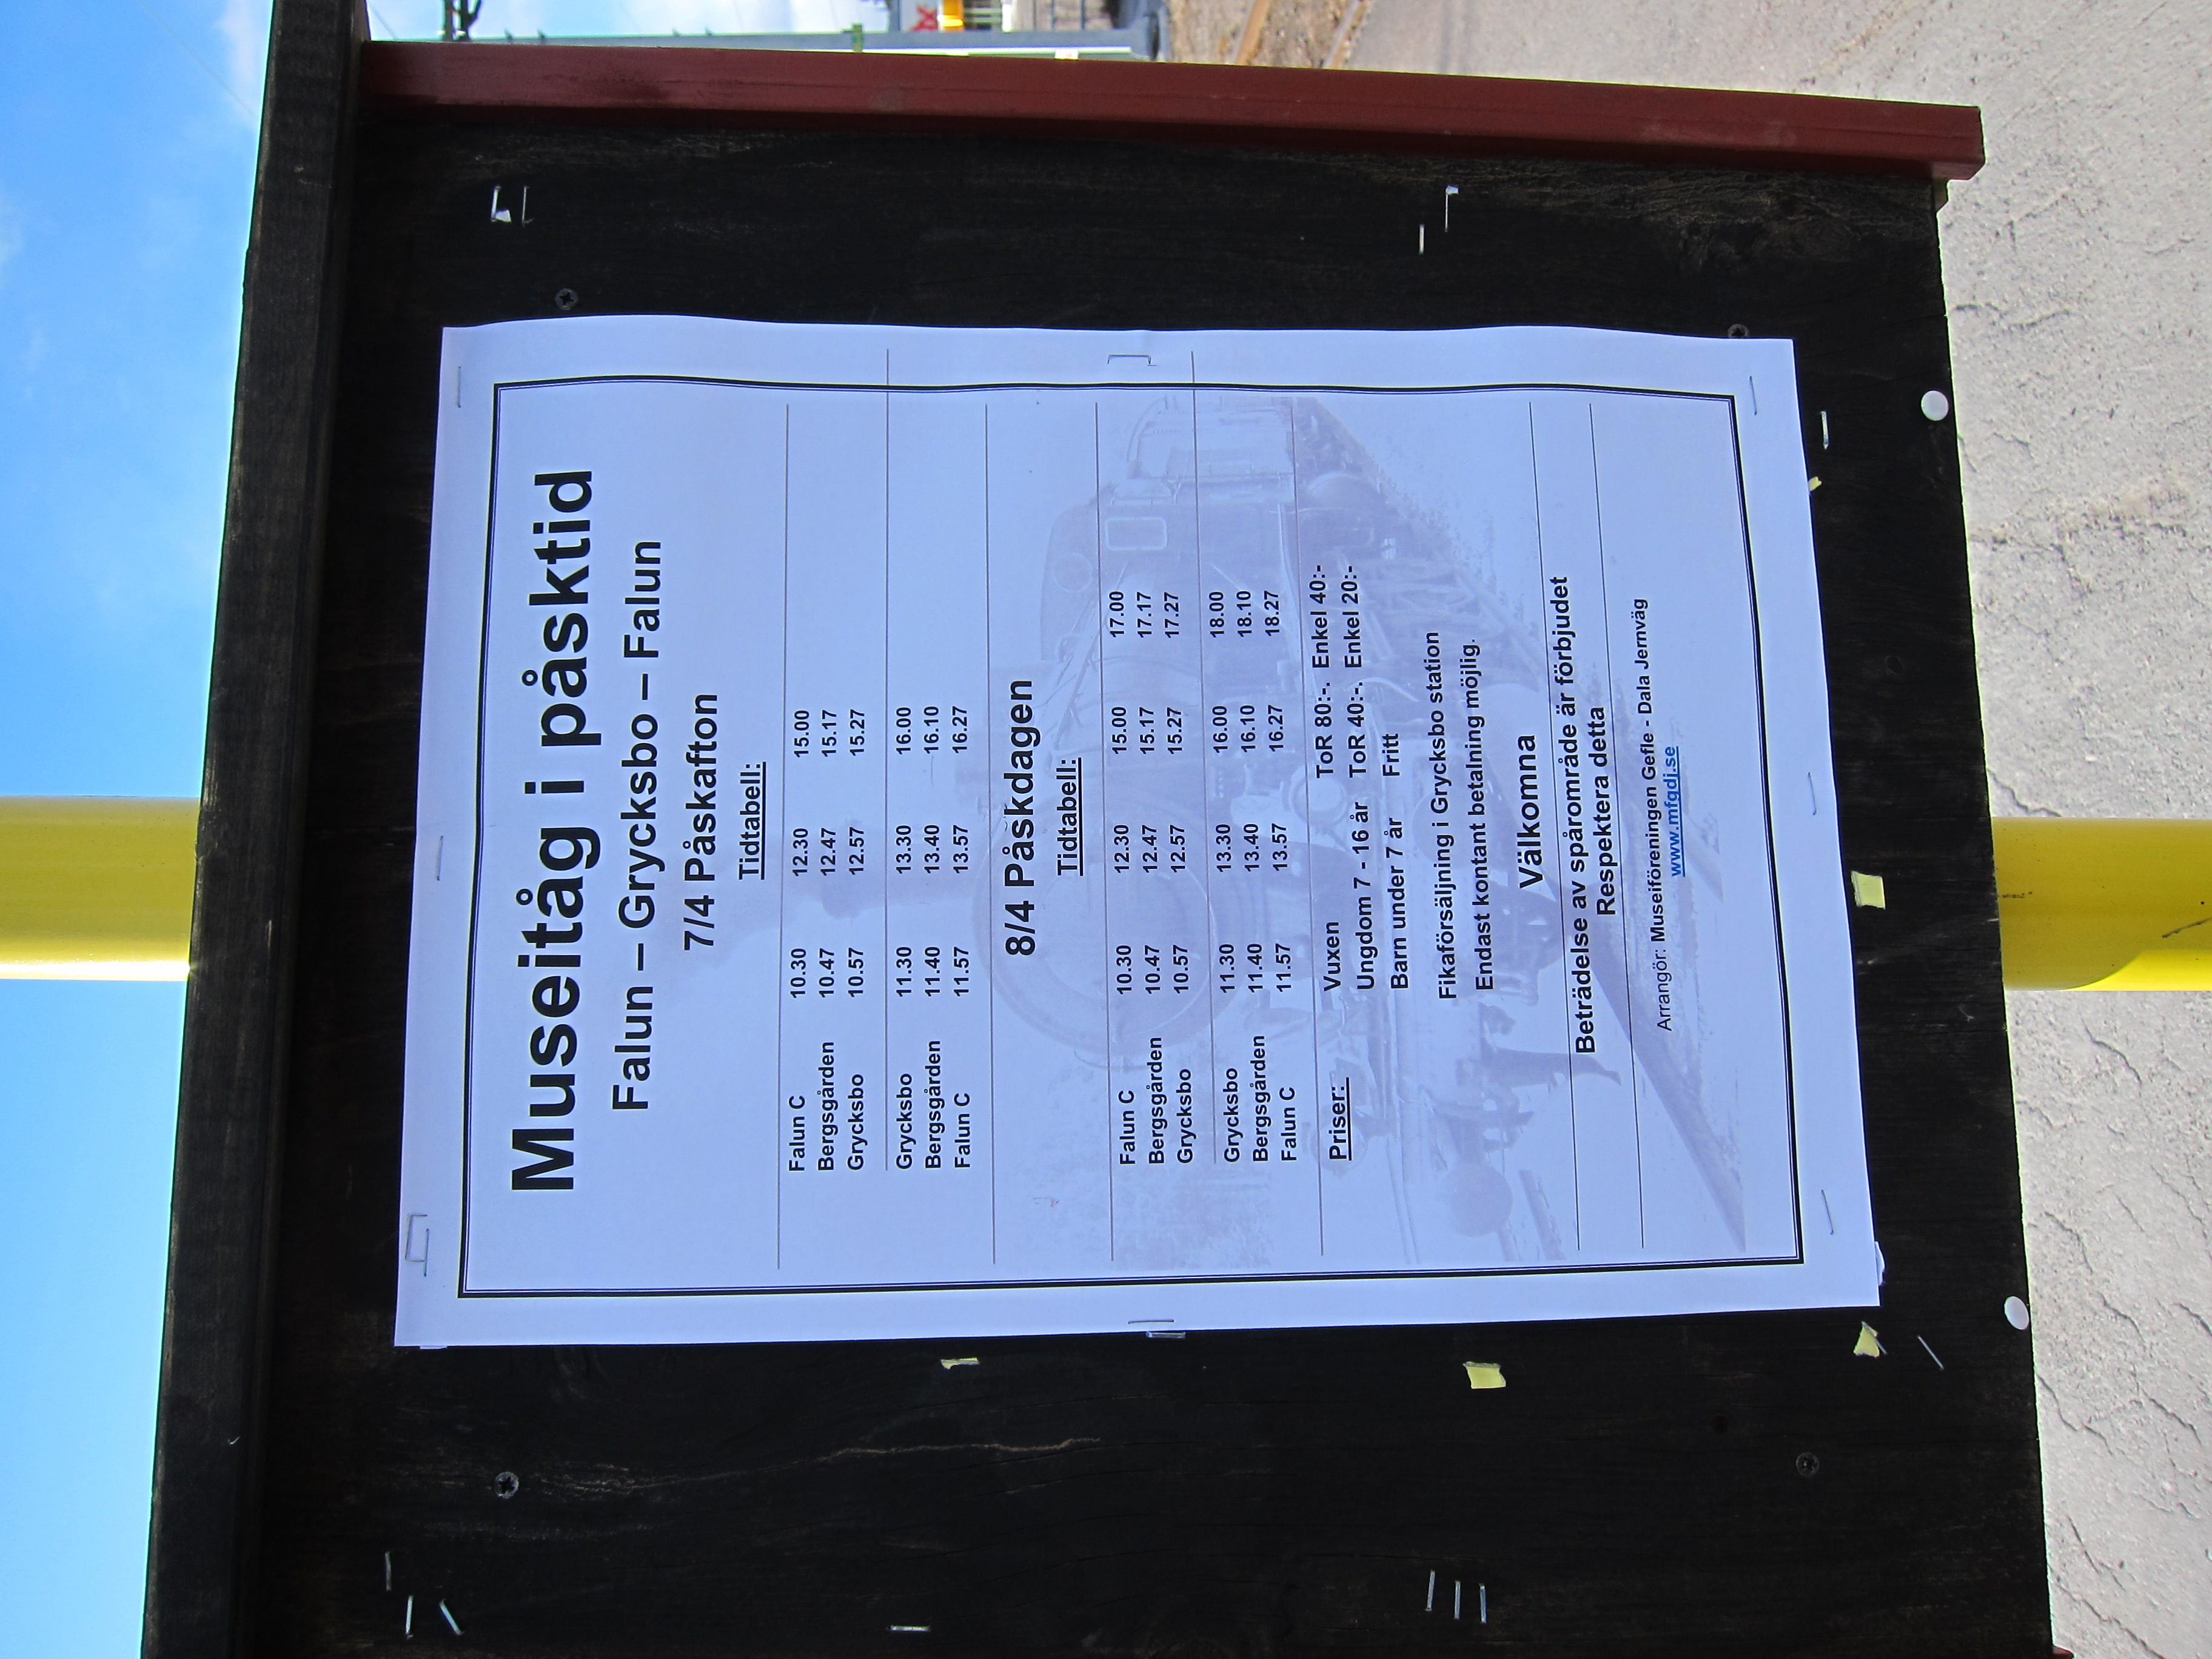 Museitåg i påsktid
Falun – Grycksbo – Falun
7/4 Påskafton
Tidtabell:
Falun C 10.30 12.30 15.00
Bergsgården 10.47 12.47 15.17
Grycksbo 10.57 12.57 15.27
Grycksbo 11.30 13.30 16.00
Bergsgården 11.40 13.40 16.10
Falun C 11.57 13.57 16.27
8/4 Påskdagen
Tidtabell:
Falun C 10.30 12.30 15.00 17.00
Bergsgården 10.47 12.47 15.17 17.17
Grycksbo 10.57 12.57 15.27 17.27
Grycksbo 11.30 13.30 16.00 18.00
Bergsgården 11.40 13.40 16.10 18.10
Falun C 11.57 13.57 16.27 18.27
Priser: Vuxen ToR 80:-. Enkel 40:-
Ungdom 7 - 16 år ToR 40:-. Enkel 20:-
Barn under 7 år Fritt
Fikaförsäljning i Grycksbo station
Endast kontant betalning möjlig.
Välkomna
Beträdelse av spårområde är förbjudet
Respektera detta
Arrangör: Museiföreningen Gefle - Dala Jernväg
www.mfgdj.se